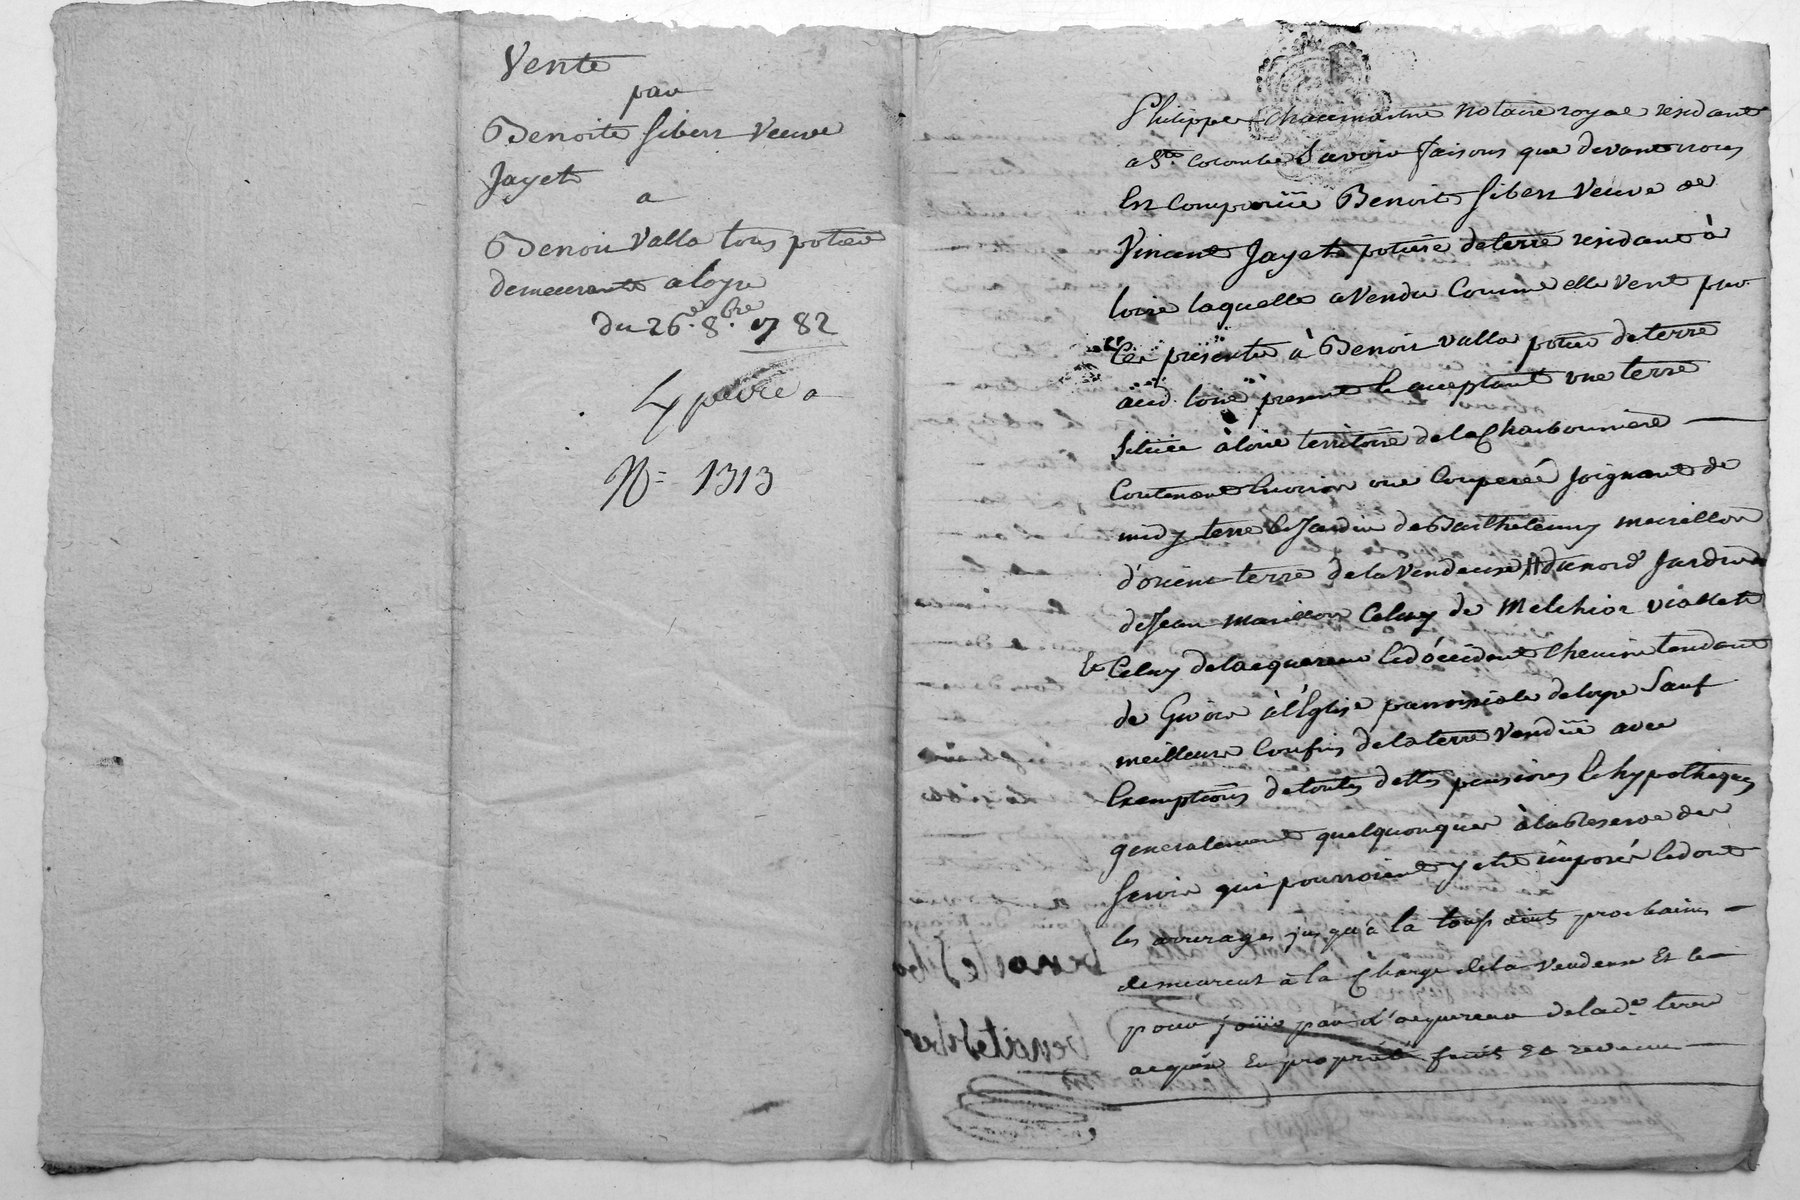 Vente
par
Benoite Sibert Veuve
Jayet
a
Benoit Valla tous potier
demeurants a loyre
du 26.e 8.bre 1782
N.= 1313
Philippe Chaumartin Notaire royal residant
a S.te Colombe Savoir faisons que devant nous
Est comparüe Benoite Sibert Veuve de
Vincent Jayet potiere de terre residant à
loire laquelle a Vendu Comme elle Vent par
Ces presentes à Benoit Valla potier de terre
aud. loire present Et acceptant une terre
Située à loire territoire de la Charbonniere
Contenant Environ une Couperée Joignant de
midy terre et Jardin de Barthelemy
d'orient terre de la Vendeuse du nord Jardin
de Jean Celuy de Melchior Viallet
Et Celuy de lacquereur Et d'occident Chemin tendant
de à l'Eglise parroissiale de loyre Sauf
meilleurs Confins de la terre Vendüe avec
Exemptions de toutes dettes pensions Et hypotheques
generalement quelquonques à la Reserve des
Servis qui pourroient y etre imposés Et dont
les arrerages jusqu'à la toussaint prochaine
demeurent à la Charge de la Vendeuse Et Ce
pour joüir par l'acquereur de lad.e terre
acquise En propriété fruits Et revenus